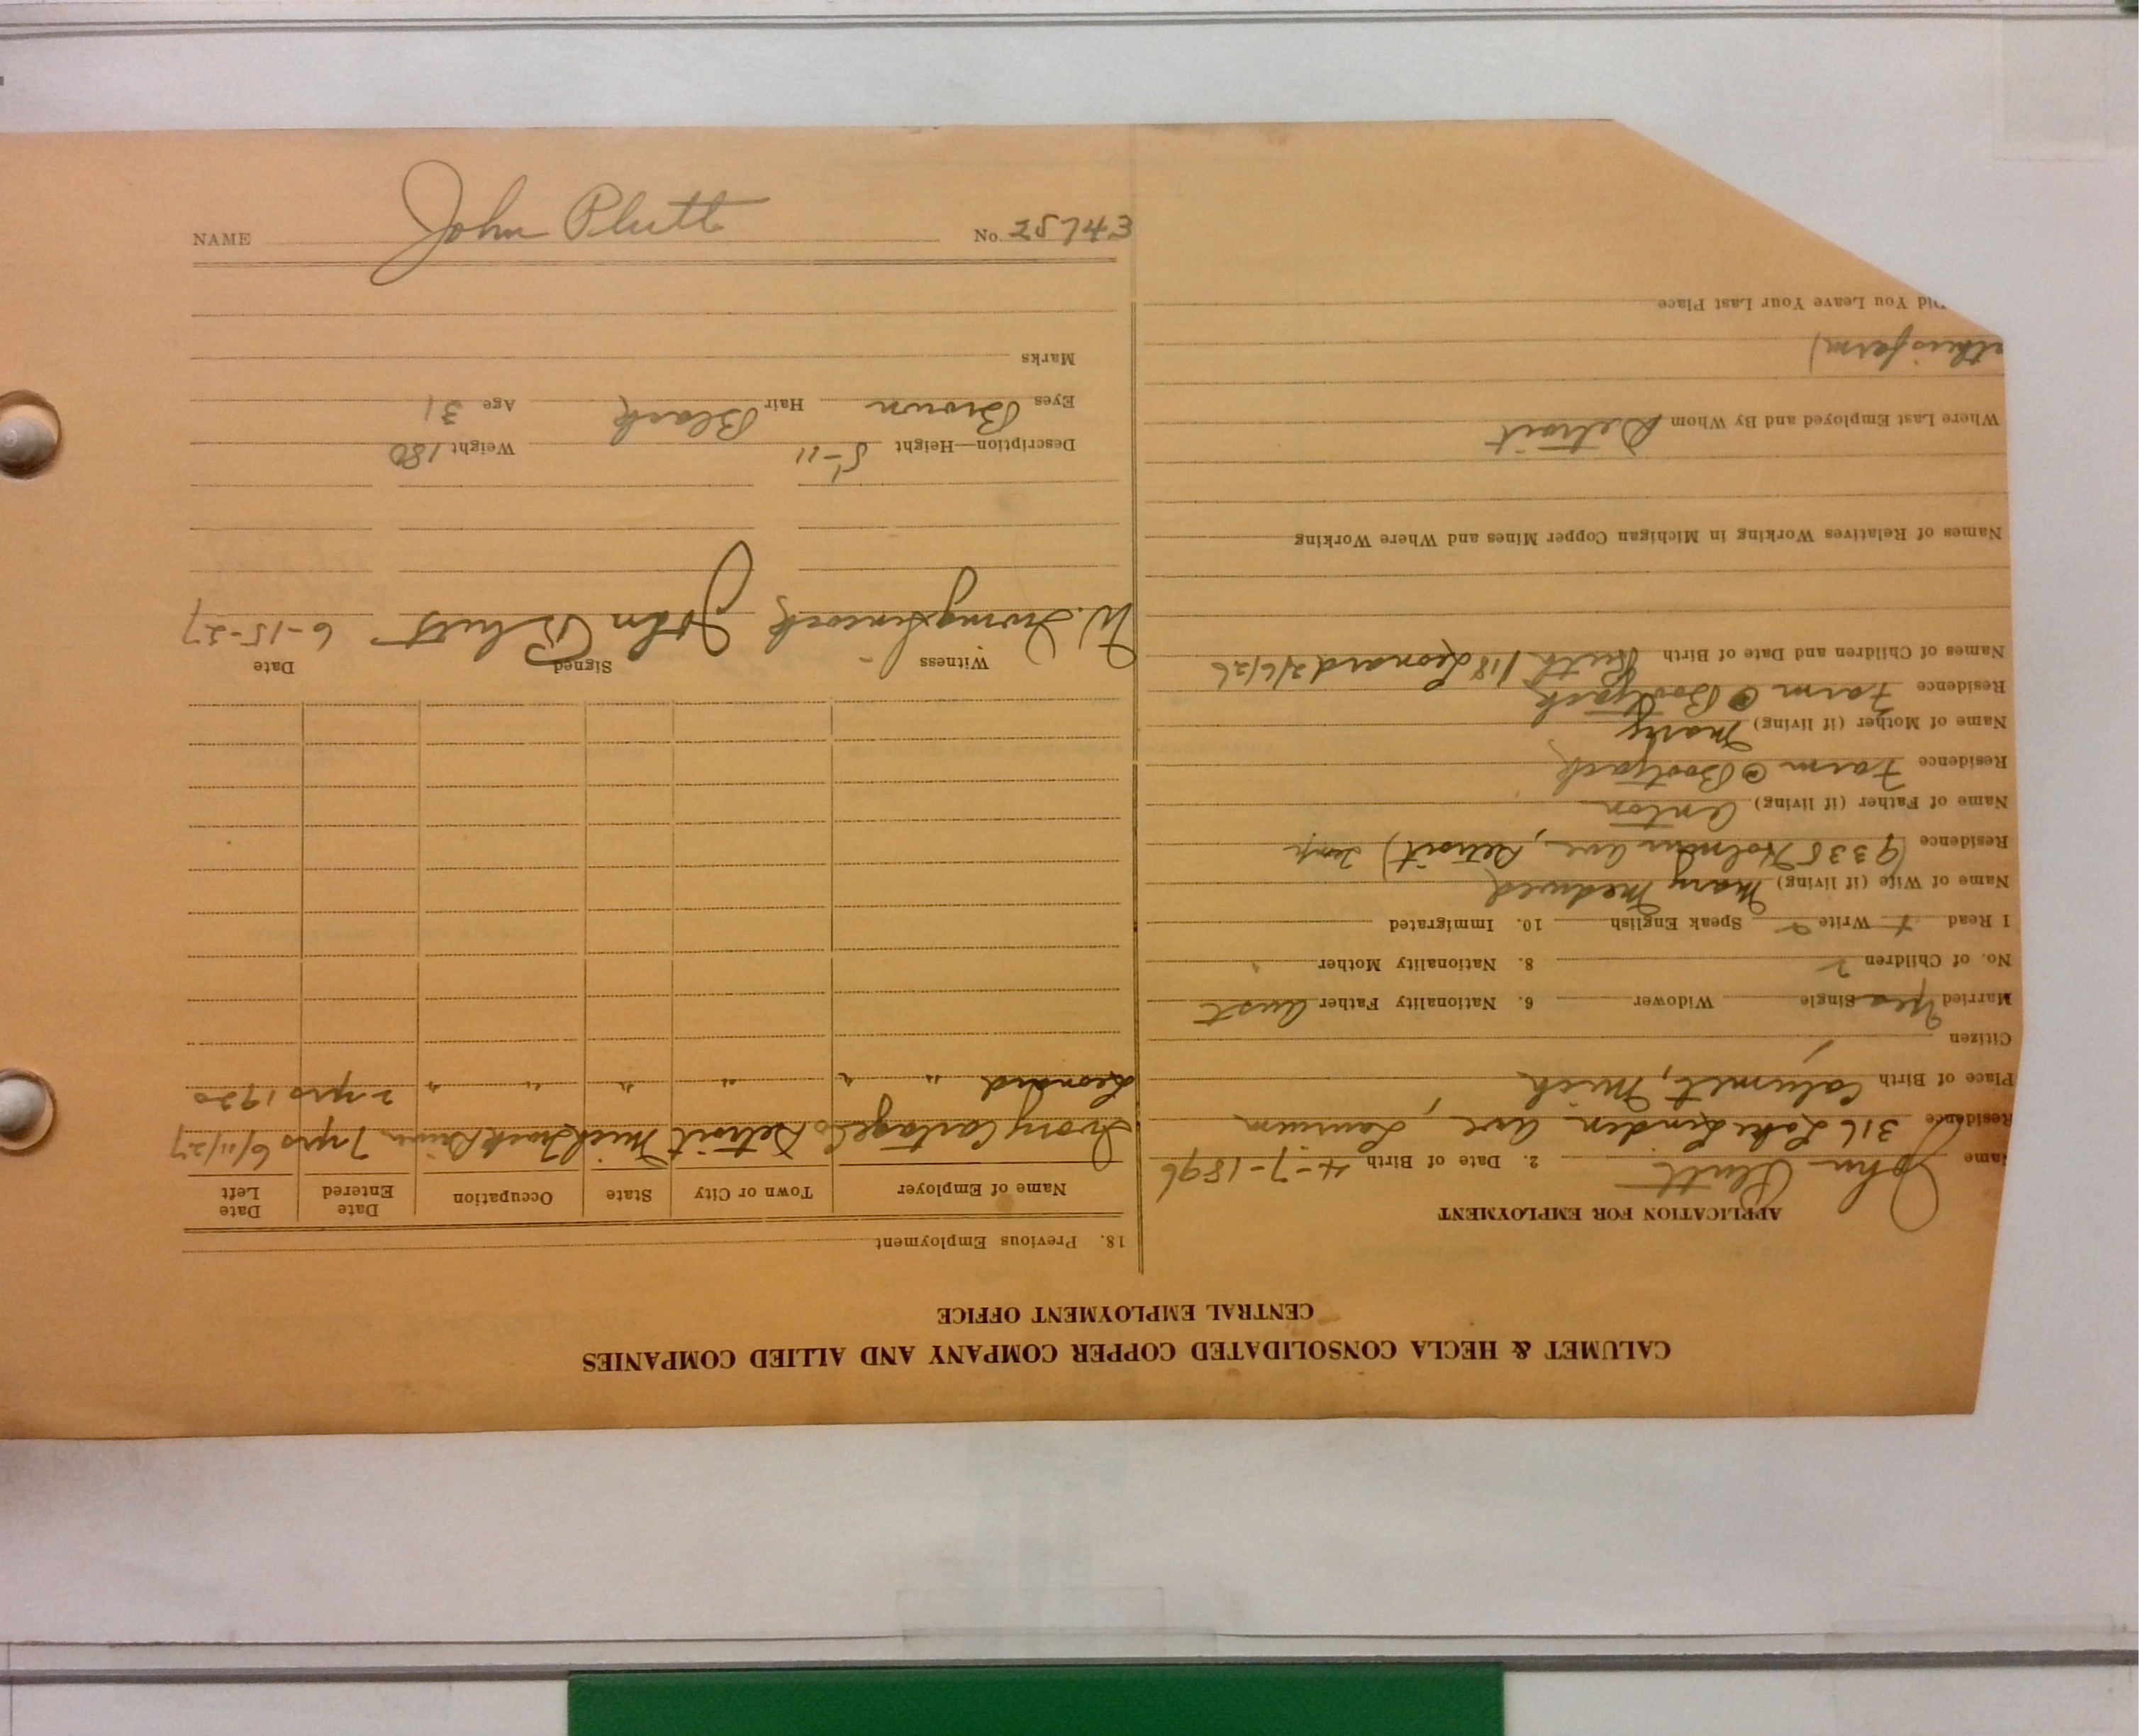 CALUMET & HECLA CONSOLIDATED COPPER COMPANY AND ALLIED COMPANIES
CENTRAL EMPLOYMENT OFFICE
APPLICATION FOR EMPLOYMENT
ame John Plutt 2. Date of Birth 4-7-1896
Residence 316 Lake Linden Ave, Laurium
Place of Birth Calumet, Mich
Citizen
Married Yes Single Widower 6. Nationality Father Aust
No. of Children 2 8. Nationality Mother "
I Read + Write Speak English 10. Immigrated
Name of Wife (if living) Mary Medved
Residence (9335 Holmur Ave, Detroit) Temp
Name of Father (if living) Anton
Residence Farm @ Bootjack
Name of Mother (if living) Mary
Residence Farm @ Bootjack
Names of Children and Date of Birth Ruth 1/18 Leonard 2/6/26
Names of Relatives Working in Michigan Copper Mines and Where Working
Where Last Employed and By Whom Detroit
athers farm)
Did You Leave Your Last Place
18. Previous Employment
Name of Employer Town or City State Occupation Date Entered Date Left
Ivory Cartage Co Detroit Mich Truck Driver 7 yrs 6/11/27
Leonard " " " " " " 2 yrs 1920
Witness Signed Date
W. Irving John Plutt 6-15-27
Description—Height 5-11 Weight 180
Eyes Brown Hair Black Age 31
Marks
NAME John Plutt No. 25743